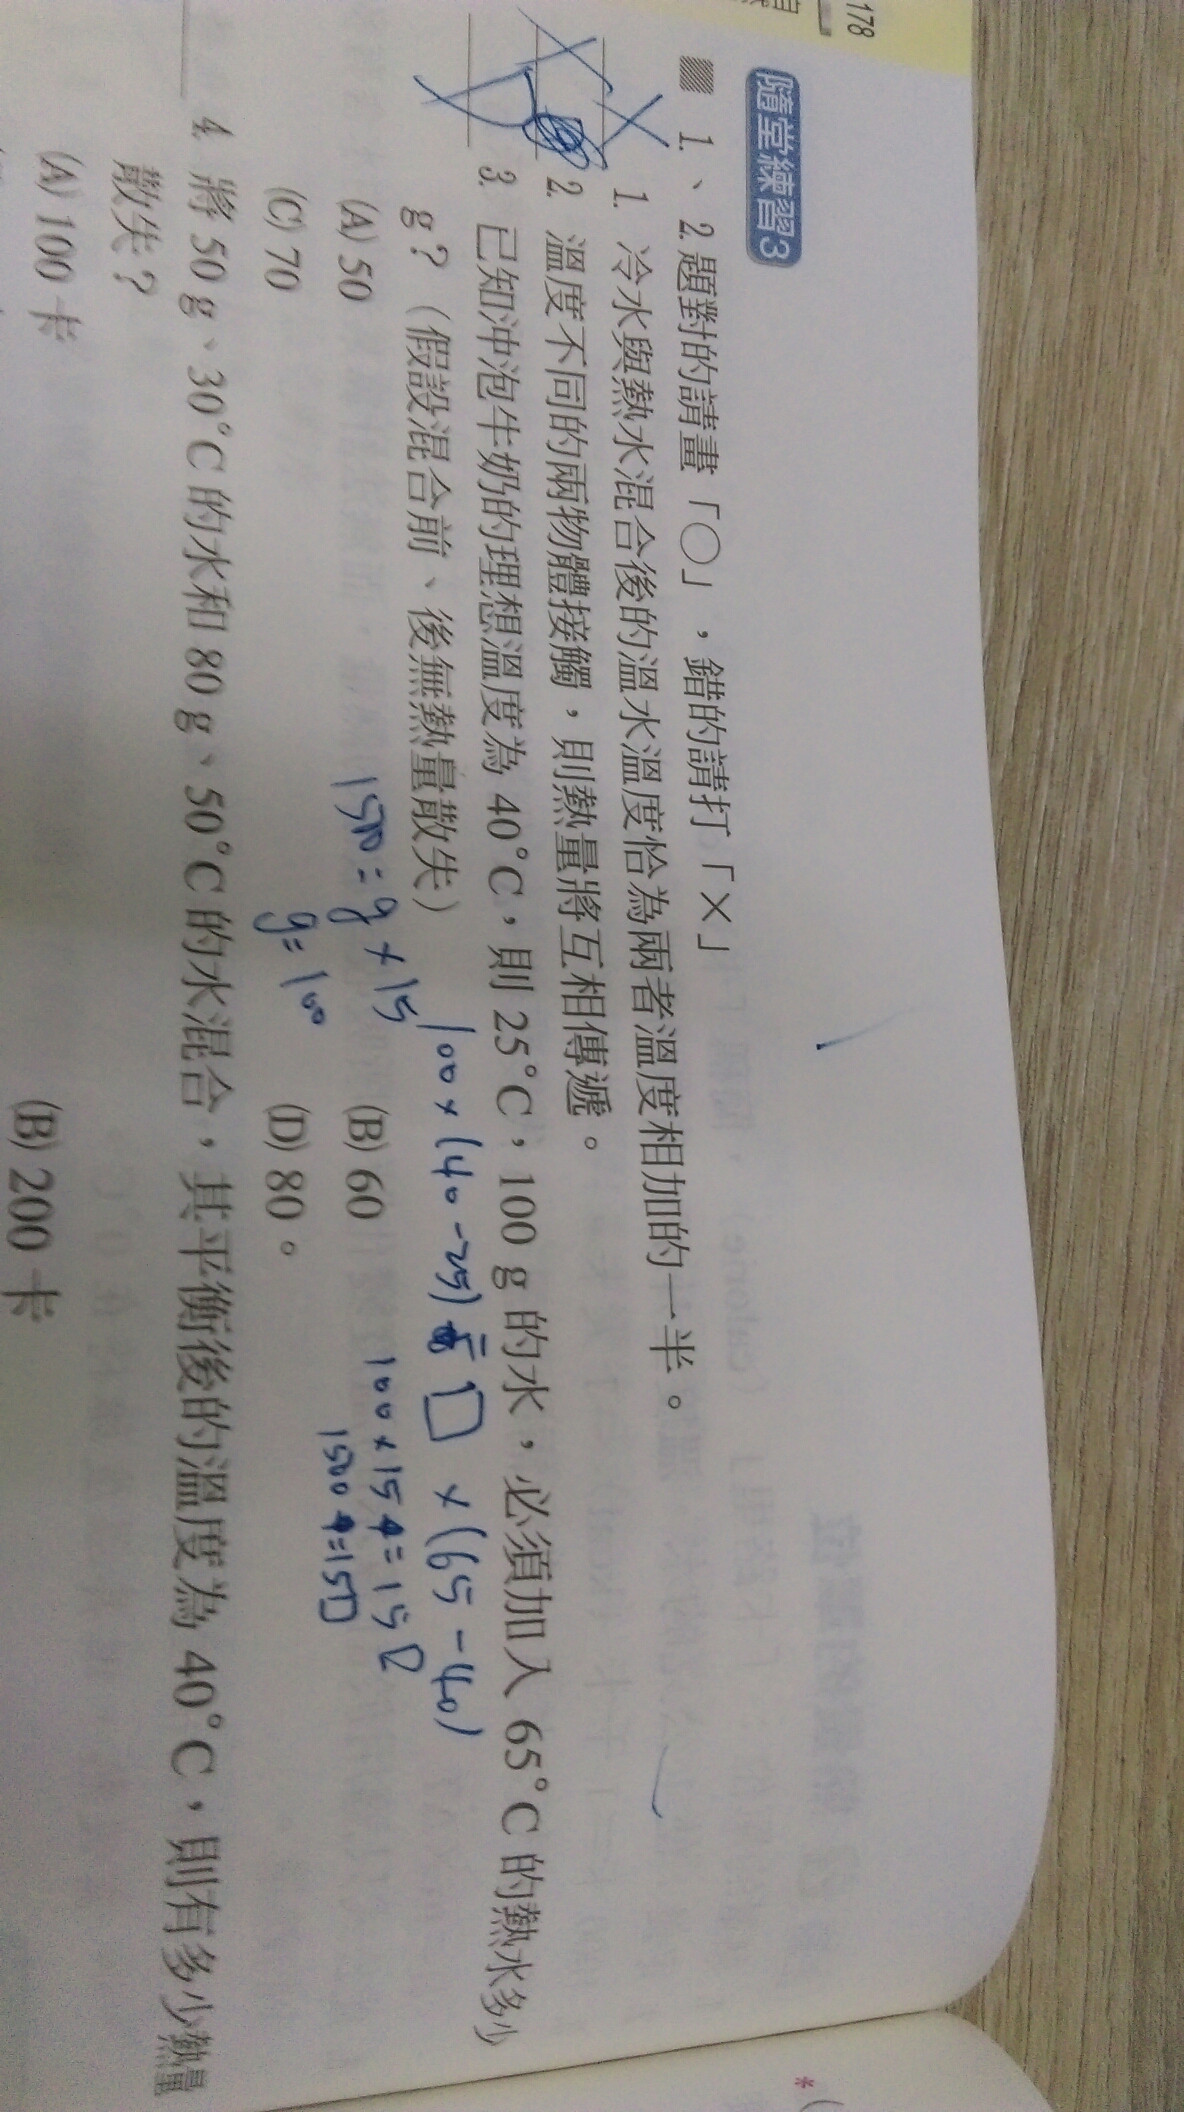 178
隨堂練習3
1.、2.題對的請畫「○」,錯的請打「×」
1. 冷水與熱水混合後的溫水溫度恰為兩者溫度相加的一半。
2. 溫度不同的兩物體接觸,則熱量將互相傳遞。
3. 已知沖泡牛奶的理想溫度為 40°C,則 25°C,100 g 的水,必須加入 65°C 的熱水多少
g?(假設混合前、後無熱量散失)
100×(40-25)=□×(65-40)
(A) 50
(B) 60
1500=g×15
100×15=15□
1500=15□
(C) 70
(D) 80。
g=100
4. 將 50 g、30°C 的水和 80 g、50°C 的水混合,其平衡後的溫度為 40°C,則有多少熱量
散失?
(A) 100 卡
(B) 200 卡